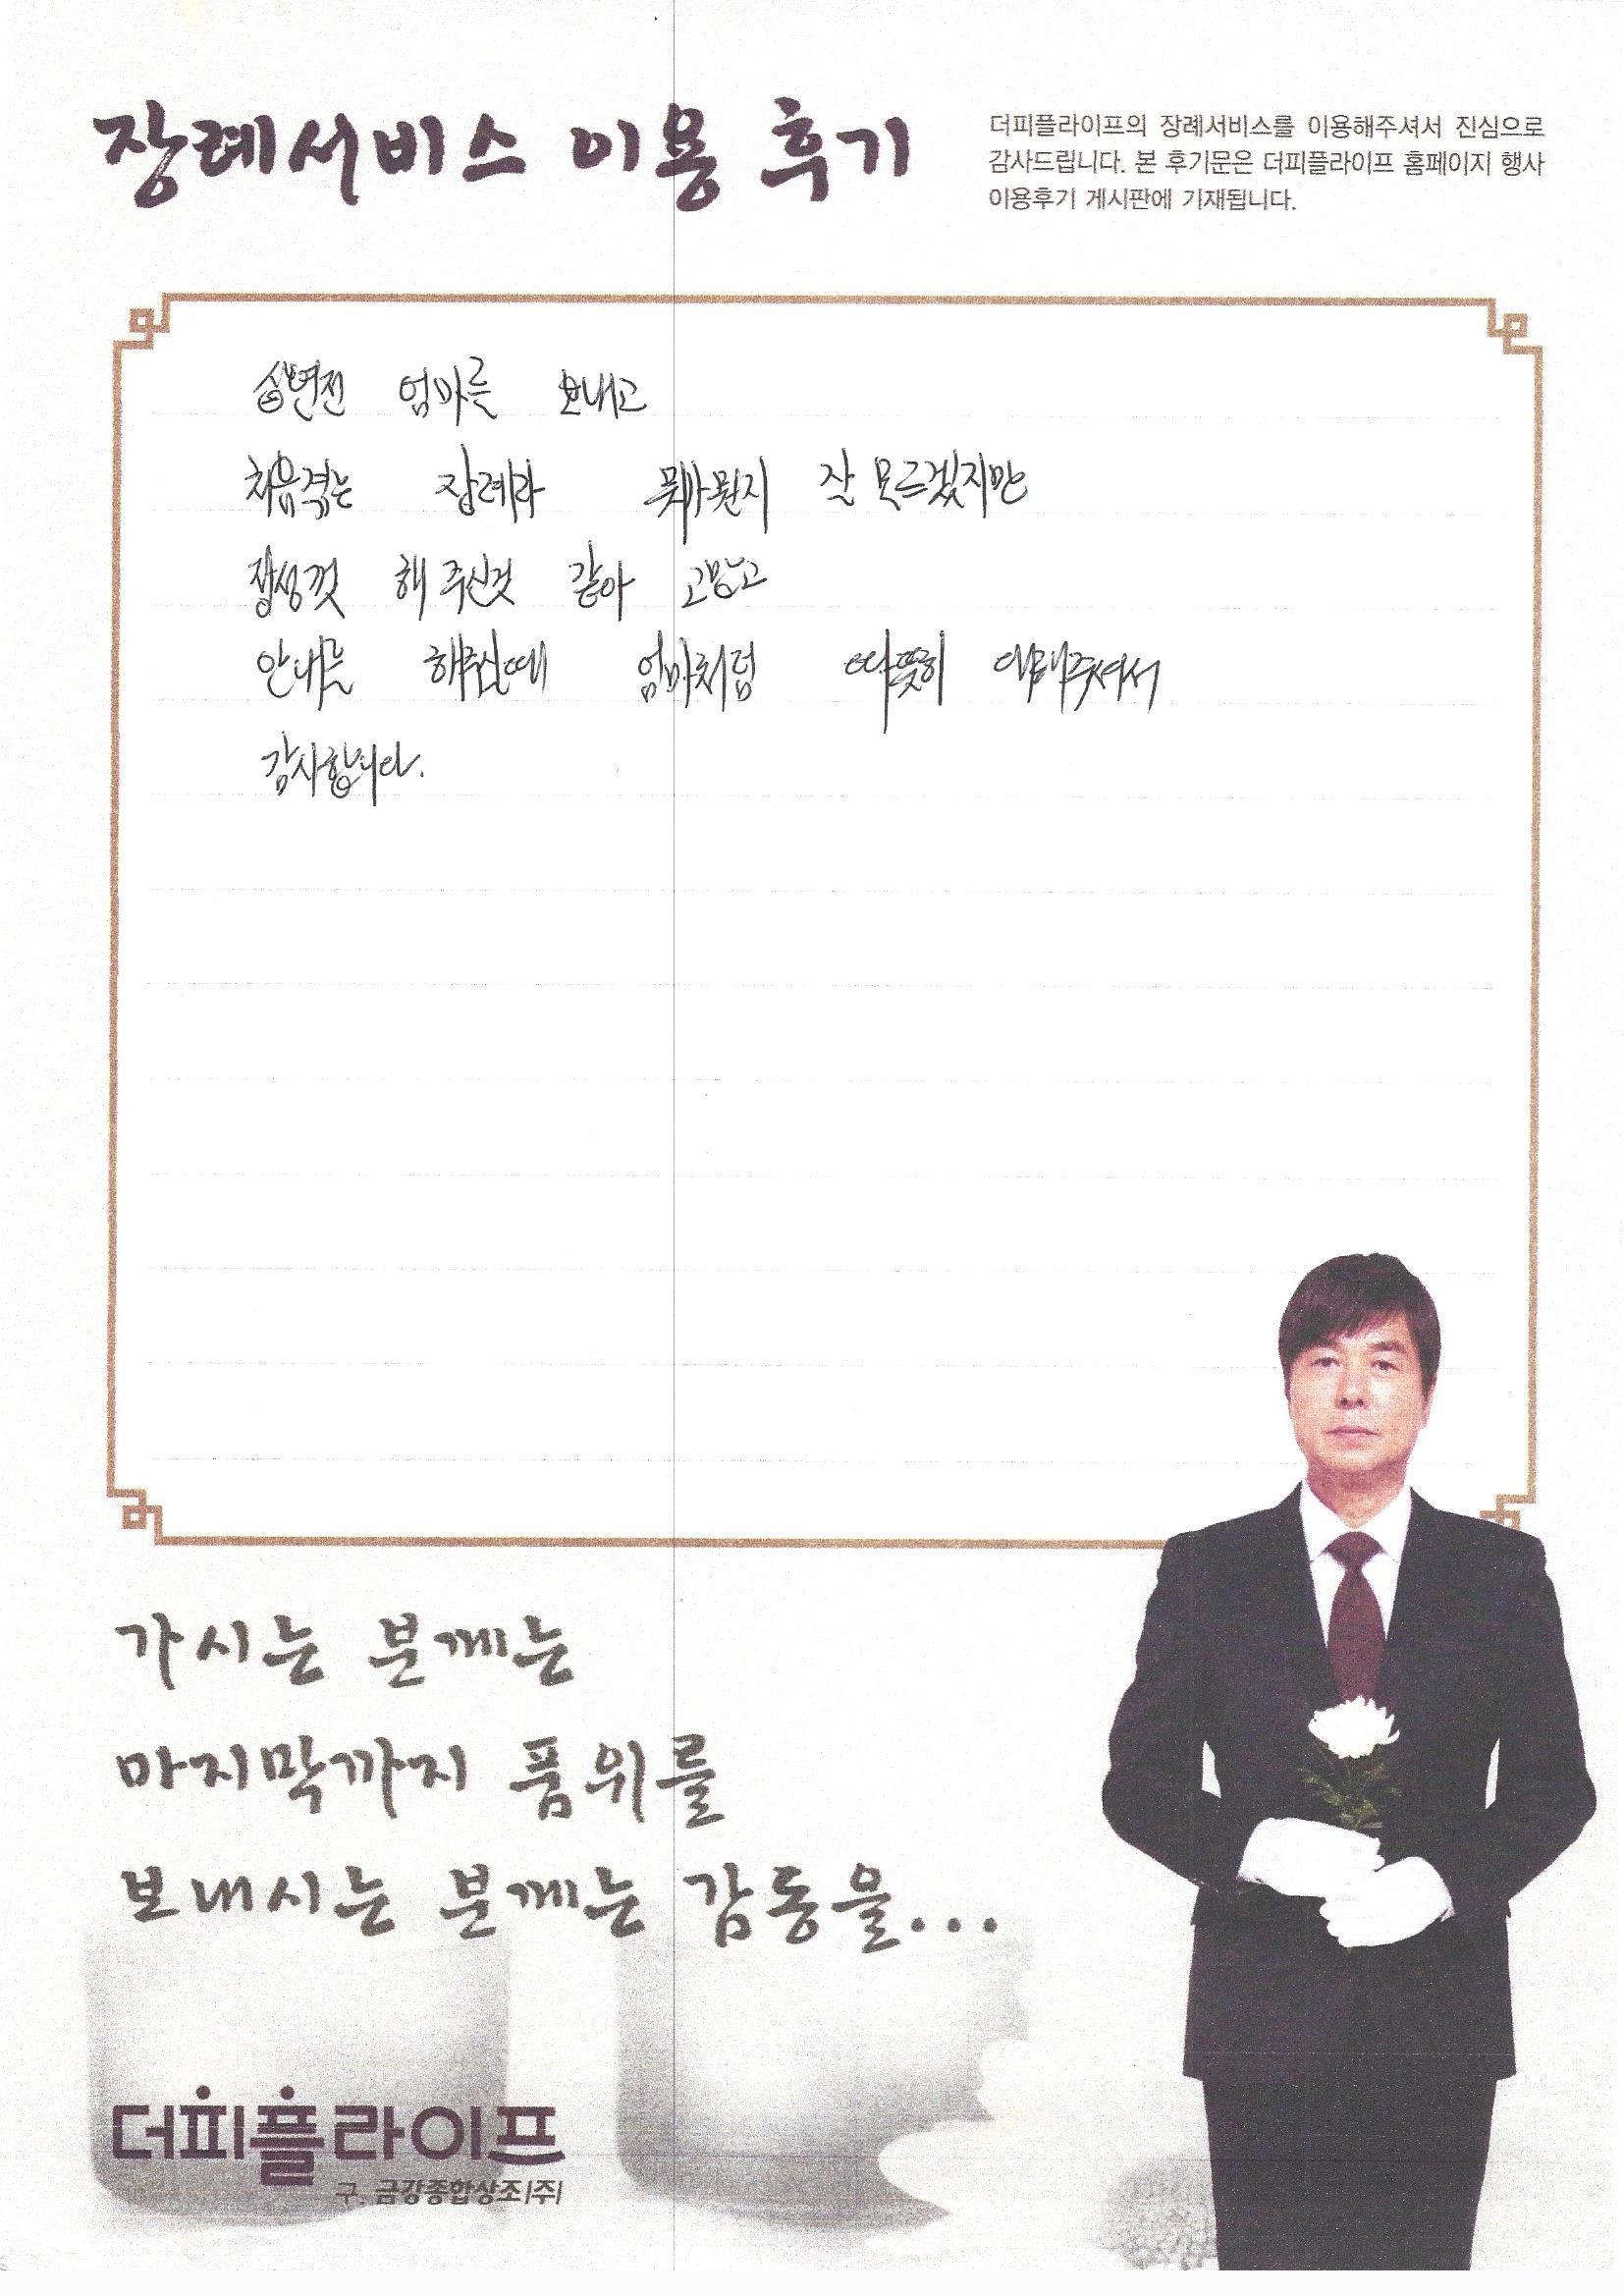 장례서비스 이용 후기
더피플라이프의 장례서비스를 이용해주셔서 진심으로
감사드립니다. 본 후기문은 더피플라이프 홈페이지 행사
이용후기 게시판에 기재됩니다.
엄마를 보내고
처음겪는 장례라 뭐가뭔지 잘 모르겠지만
정성껏 해 주신것 같아 고맙고
안내를 해주실때 엄마처럼 따뜻히
감사합니다.
가시는 분께는
마지막까지 품위를
보내시는 분께는 감동을...
더피플라이프
구. 금강종합상조(주)